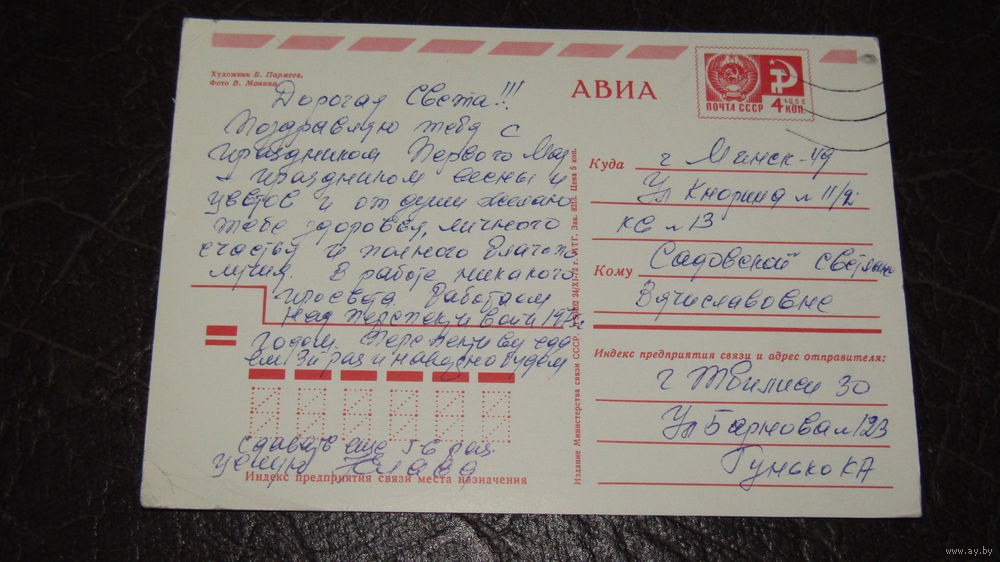 Художник Б. Пармеев.
Фото В. Монина
АВИА
ПОЧТА СССР
1966
4 КОП
Дорогая Света!!!
Поздравляю тебя с
праздником Первого Мая
праздником весны и
цветов и от души желаю
тебе здоровья, личного
счастья и полного благопо
лучия. В работе никакого
просвета. Работаем
над перспективой 1975
годом. Перспективу сда
ем 3й раз и наверно будем
сдавать еще 5 6 раз.
целую Клава
Индекс предприятия связи места назначения
Издание Министерства связи СССР. 24/XI-72 г. МТГ. Зак. Цена 5 коп.
Куда г Минск-119
Ул Кнорина 11/2
кв 13
Кому Садовской Светлане
Вячиславовне
Индекс предприятия связи и адрес отправителя:
г Тбилиси 30
Ул Барнова 123
Гунько КА
www.ay.by